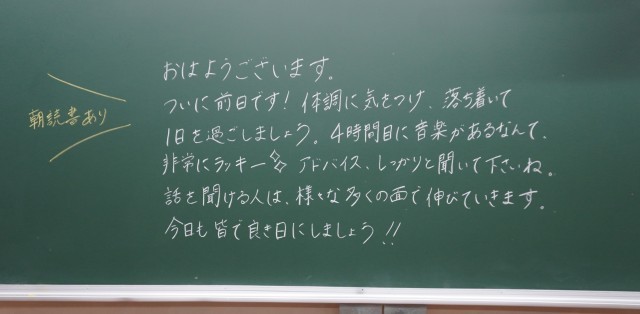 朝読書あり
おはようございます。
ついに前日です！体調に気をつけ、落ち着いて
1日を過ごしましょう。4時間目に音楽があるなんて、
非常にラッキー✧ アドバイス、しっかりと聞いて下さいね。
話を聞ける人は、様々な多くの面で伸びていきます。
今日も皆で良き日にしましょう!!